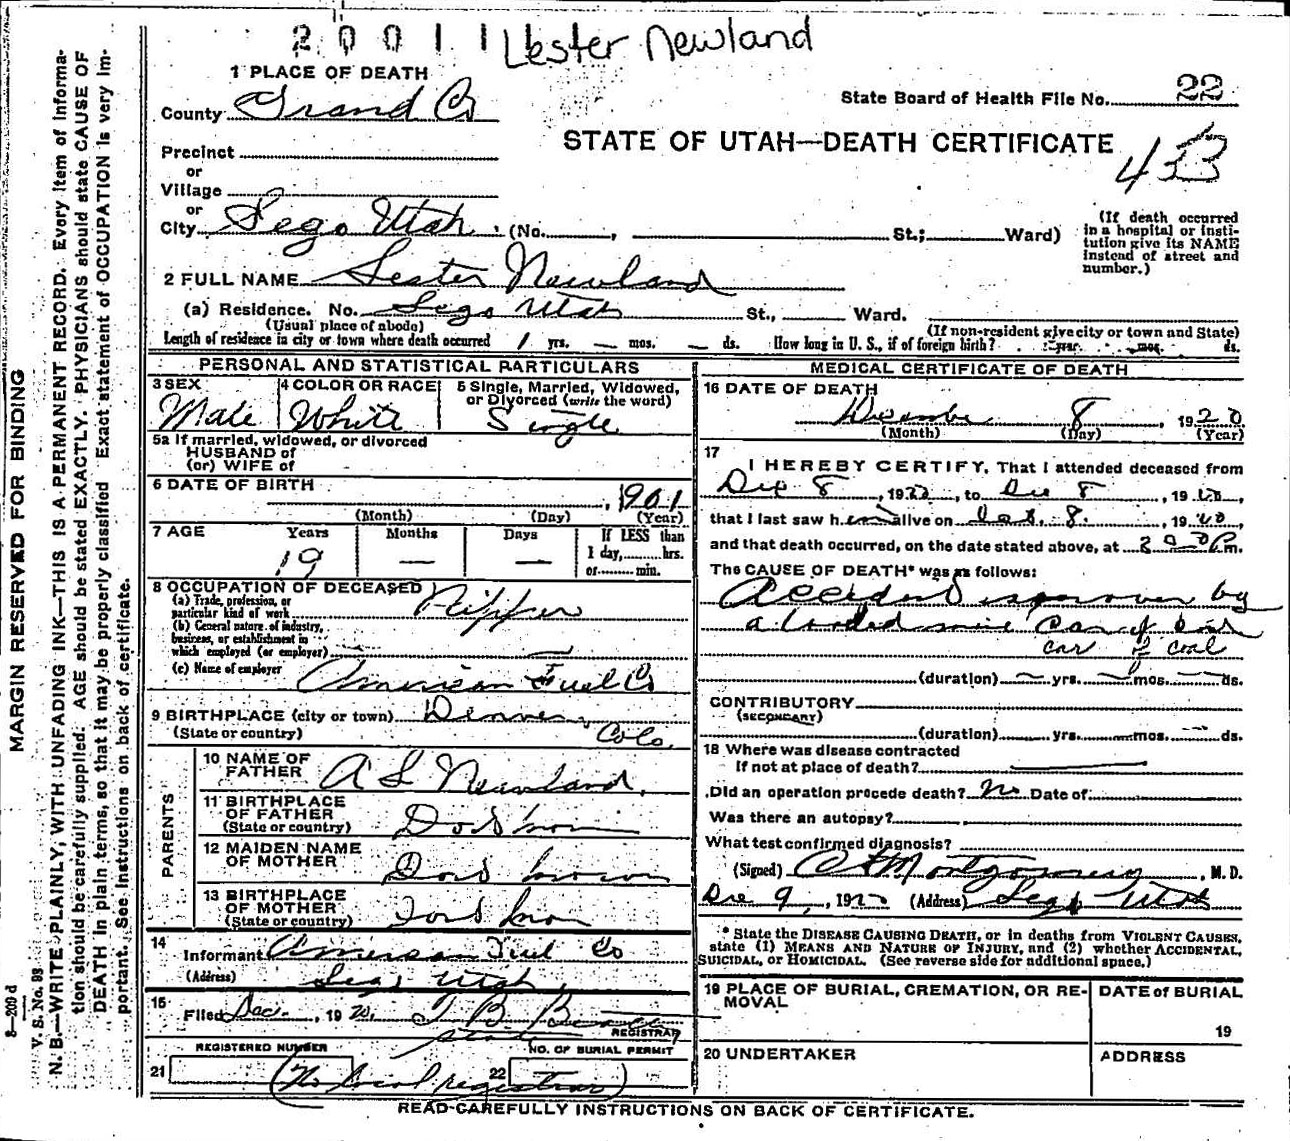 20011 Lester Newland
1 PLACE OF DEATH
County Grand Co
State Board of Health File No. 22
STATE OF UTAH—DEATH CERTIFICATE
433
Precinct
or
Village
or
City Sego Utah. (No. , St.; Ward)
(If death occurred in a hospital or institution give its NAME instead of street and number.)
2 FULL NAME Lester Newland
(a) Residence. No. Sego Utah St., Ward.
(Usual place of abode) (If non-resident give city or town and State)
Length of residence in city or town where death occurred 1 yrs. — mos. — ds. How long in U. S., if of foreign birth? yrs. mos. ds.
PERSONAL AND STATISTICAL PARTICULARS
3 SEX Male
4 COLOR OR RACE White
5 Single, Married, Widowed, or Divorced (write the word) Single
5a If married, widowed, or divorced
HUSBAND of
(or) WIFE of
6 DATE OF BIRTH , 1901
(Month) (Day) (Year)
7 AGE Years Months Days If LESS than
19 — — 1 day, hrs.
or min.
8 OCCUPATION OF DECEASED
(a) Trade, profession, or
particular kind of work Nipper
(b) General nature of industry,
business, or establishment in
which employed (or employer)
(c) Name of employer American Fuel Co
9 BIRTHPLACE (city or town) Denver,
(State or country) Colo
PARENTS
10 NAME OF FATHER A L Newland.
11 BIRTHPLACE OF FATHER
(State or country)
12 MAIDEN NAME OF MOTHER
13 BIRTHPLACE OF MOTHER
(State or country)
14 Informant American Fuel Co
(Address) Sego Utah
15 Filed Dec. , 1920, T B
REGISTRAR
REGISTERED NUMBER NO. OF BURIAL PERMIT
21 22
(No local registrar)
MEDICAL CERTIFICATE OF DEATH
16 DATE OF DEATH
December 8, 1920
(Month) (Day) (Year)
17
I HEREBY CERTIFY, That I attended deceased from
Dec 8, 1920, to Dec 8, 1920,
that I last saw h alive on 8. , 1920
and that death occurred, on the date stated above, at P m.
The CAUSE OF DEATH* was as follows:
Accident over by
a loaded mine car of
car of coal
(duration) — yrs. — mos. — ds.
CONTRIBUTORY
(SECONDARY)
(duration) yrs. mos. ds.
18 Where was disease contracted
If not at place of death?
Did an operation precede death? No Date of
Was there an autopsy?
What test confirmed diagnosis?
(Signed) Montgomery, M. D.
Dec 9, 1920 (Address) Sego Utah
* State the DISEASE CAUSING DEATH, or in deaths from VIOLENT CAUSES,
state (1) MEANS AND NATURE OF INJURY, and (2) whether ACCIDENTAL,
SUICIDAL, or HOMICIDAL. (See reverse side for additional space.)
19 PLACE OF BURIAL, CREMATION, OR REMOVAL
DATE of BURIAL
19
20 UNDERTAKER
ADDRESS
READ CAREFULLY INSTRUCTIONS ON BACK OF CERTIFICATE.
MARGIN RESERVED FOR BINDING
8—209 d
V. S. No. 93
N. B.—WRITE PLAINLY, WITH UNFADING INK—THIS IS A PERMANENT RECORD. Every item of informa-
tion should be carefully supplied. AGE should be stated EXACTLY. PHYSICIANS should state CAUSE OF
DEATH in plain terms, so that it may be properly classified. Exact statement of OCCUPATION is very im-
portant. See instructions on back of certificate.